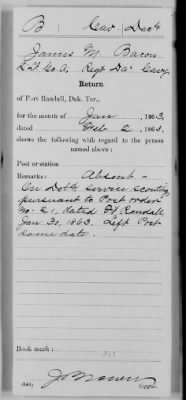 B | Cav | Dak
James M. Bacon
Lt. Co. A, Regt Da. Cavy
Return
of Fort Randall, Dak. Ter.,
for the month of Jan, 1863,
dated Feb 2, 1863.
shows the following with regard to the person
named above:
Post or station
Remarks: Absent -
On Det service scouting
pursuant to Post order
No. 21, dated Ft Randall,
Jan 30, 1863. Left Post
same date.
Book mark:
(840) Copyist.